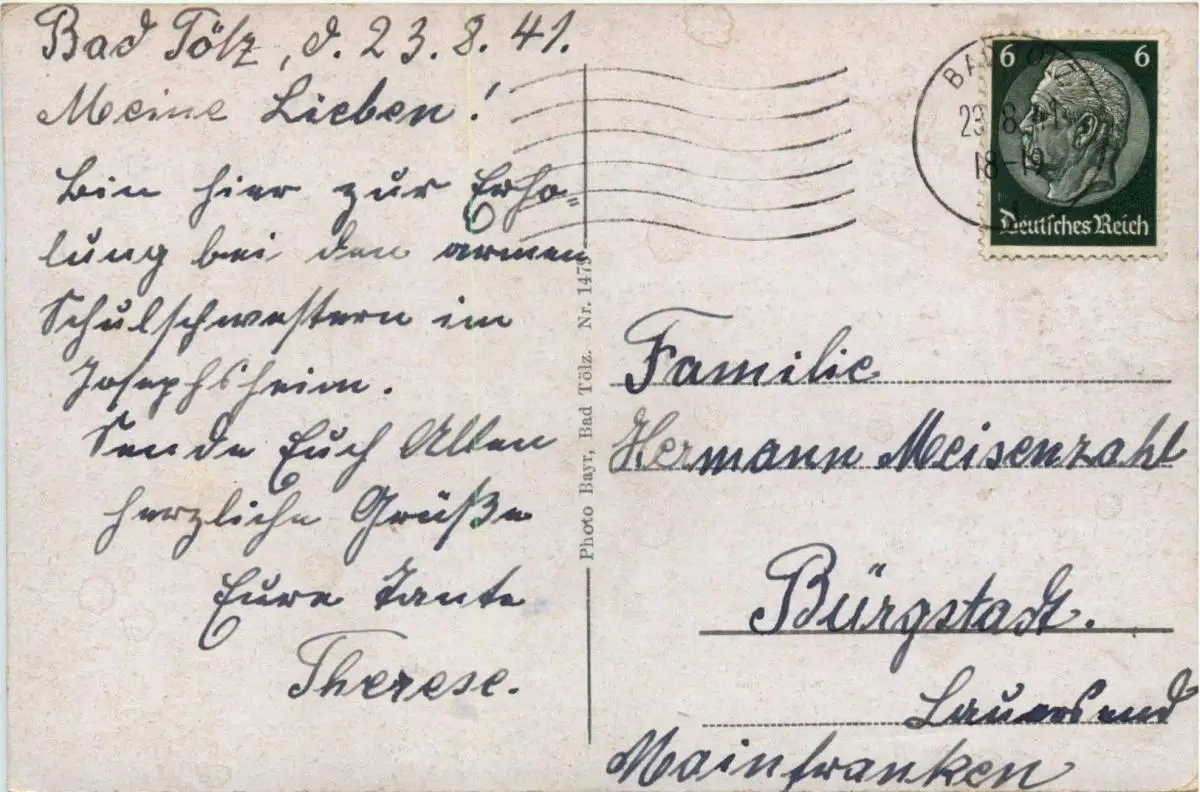 Bad Tölz, d. 23.8.41.
Meine Lieben!
Bin hier zur Erho-
lung bei den armen
Schulschwestern im
Josephsheim.
Sende Euch Allen
herzliche Grüße
Eure Tante
Therese.
Photo Bayr, Bad Tölz. Nr. 1479
BAD TÖLZ
23.8.41
18-19
6 6
Deutsches Reich
Familie
Hermann Meisenzahl
Bürgstadt.
Mainfranken